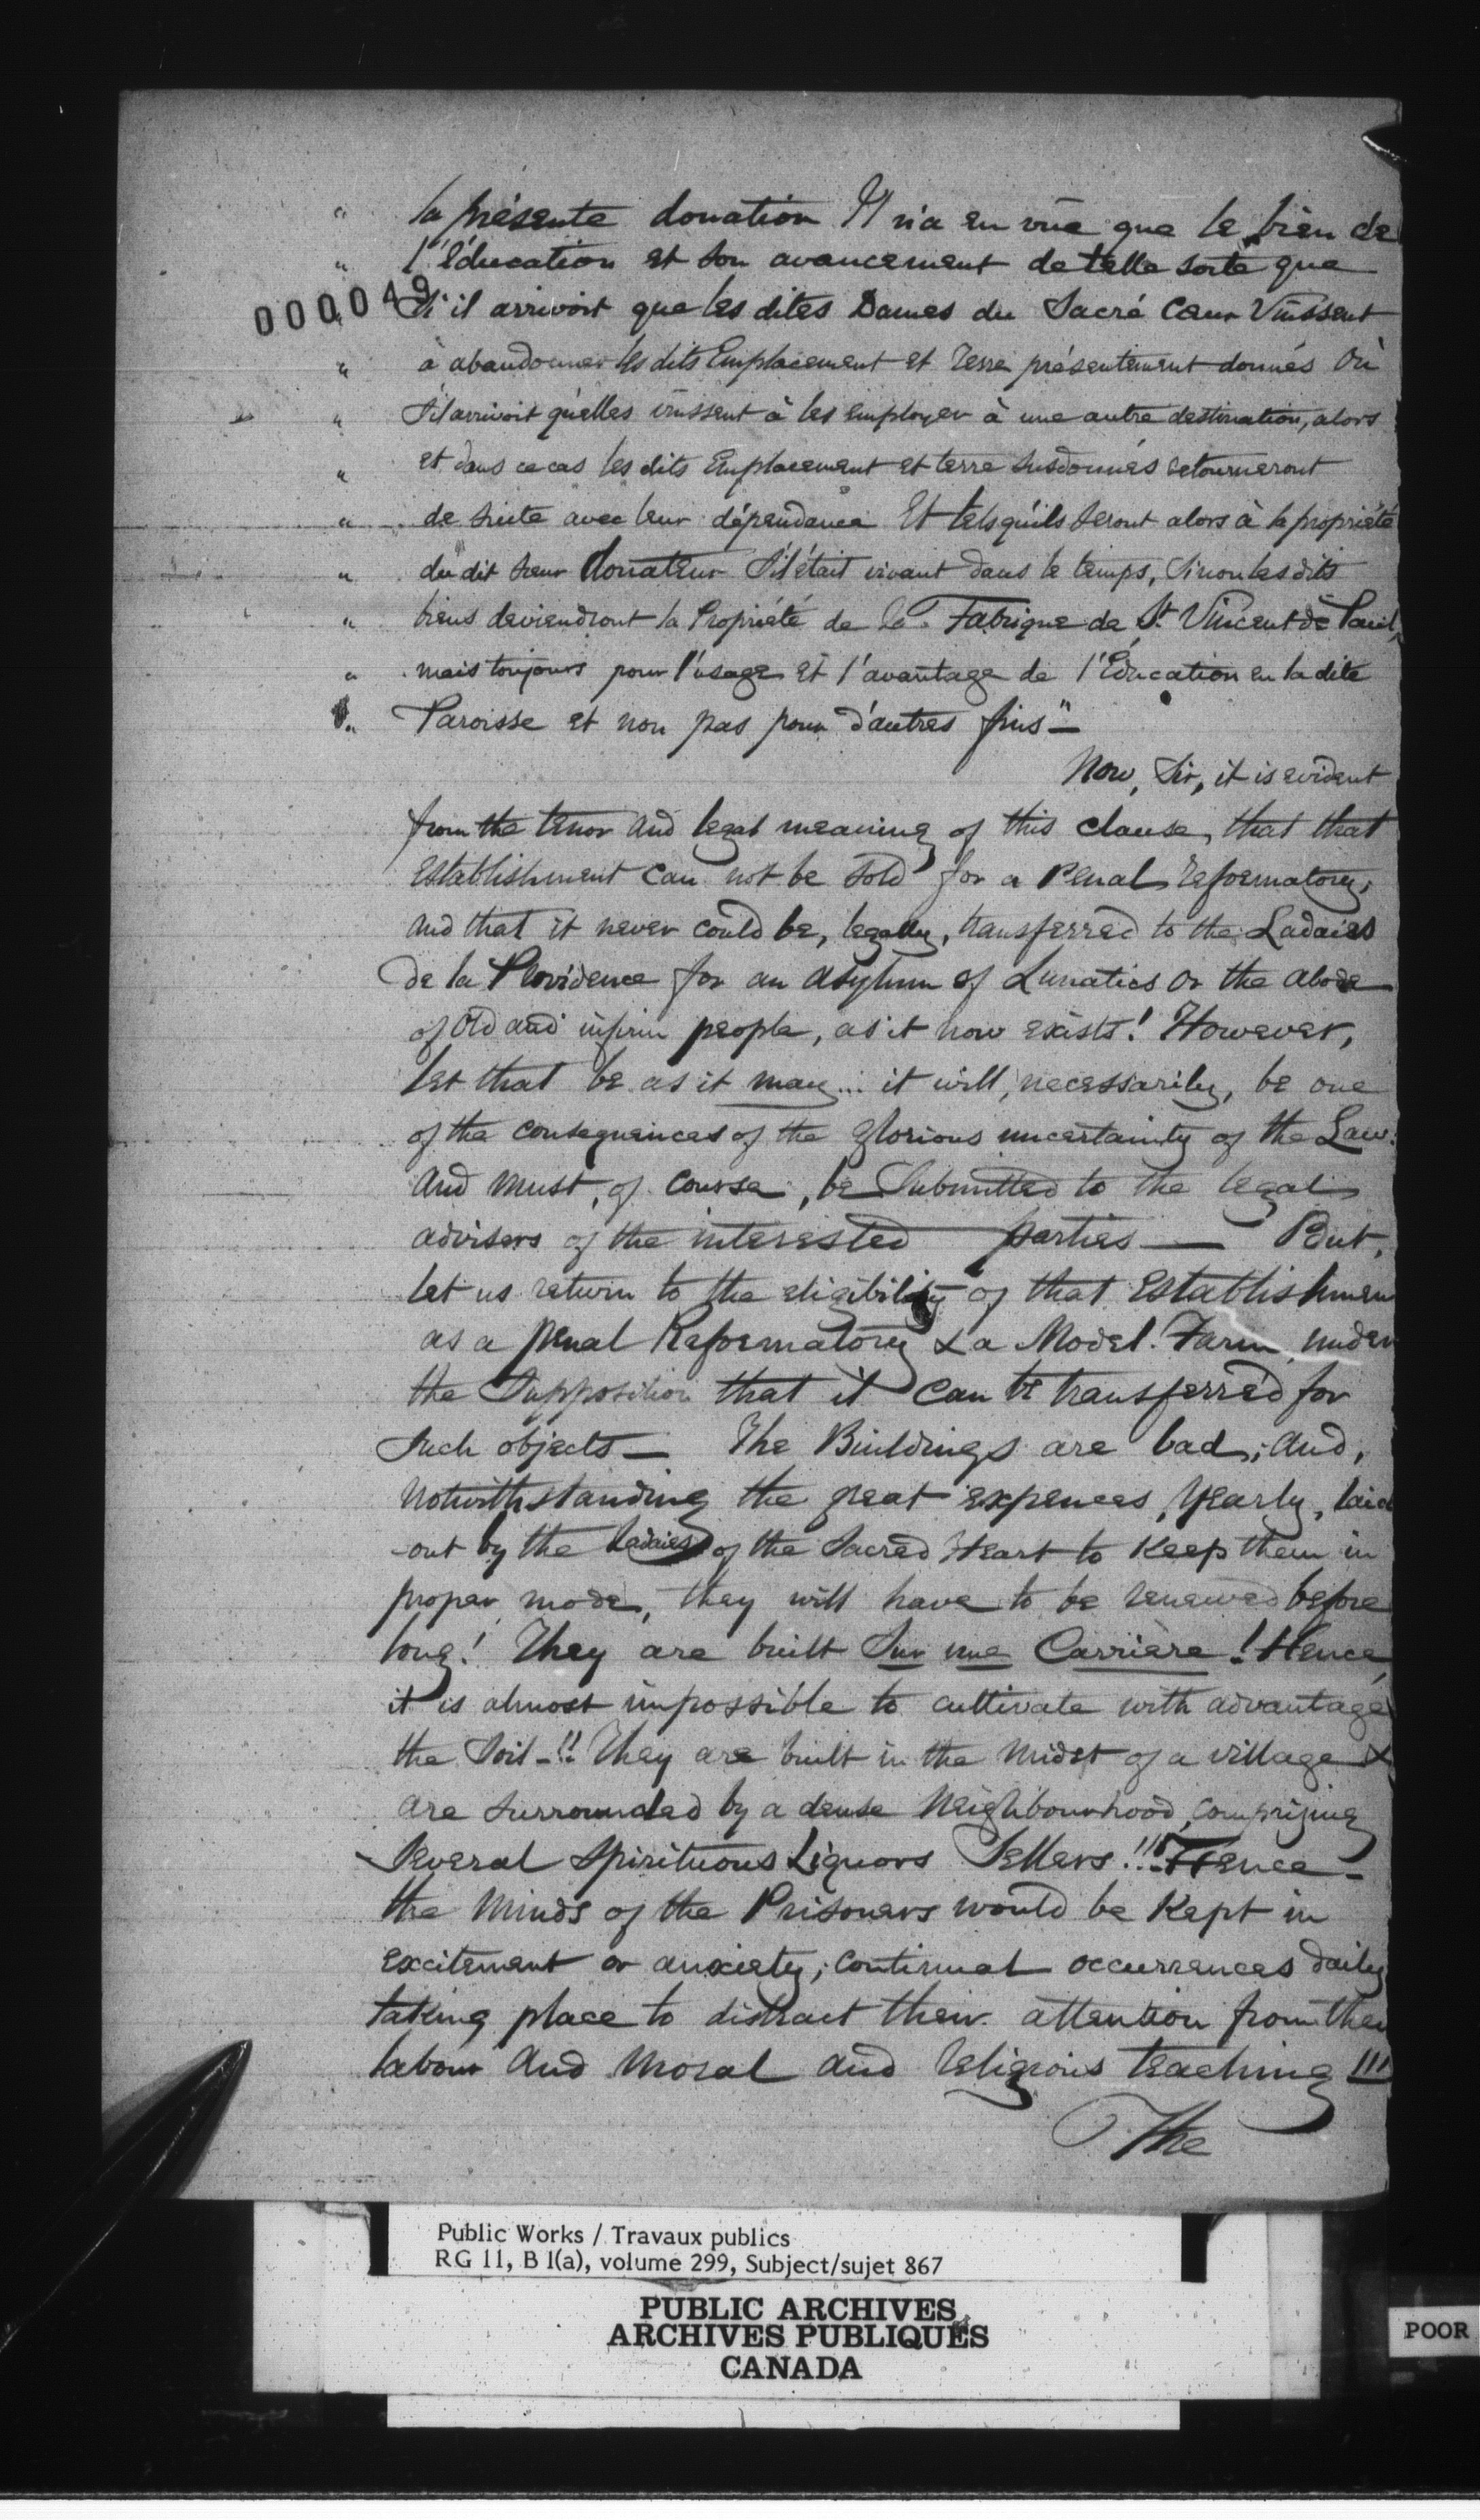 " la présente donation Il n'a en vüe que le bien de
" l'éducation et son avancement de telle sorte que
000049
" Si il arrivoit que les dites Dames du Sacré Cœur Vinssent
" à abandonner les dits Emplacement et Terre présentement donnés Ou
" S'il arrivoit qu'elles vinssent à les employer à une autre destination, alors
" et dans ce cas les dits Emplacement et terre susdonnés retourneront
" de suite avec leur dépendance Et tels qu'ils seront alors à la propriété
" du dit Sieur Donateur S'il était vivant dans le temps, Sinon les dits
" biens deviendront la Propriété de la Fabrique de St. Vincent de Paul,
" mais toujours pour l'usage et l'avantage de l'Education en la dite
" Paroisse et non pas pour d'autres fins" —
Now, Sir, it is evident
from the tenor and legal meaning of this clause, that that
Establishment can not be sold for a Penal Reformatory,
and that it never could be, legally, transferred to the Ladaies
de la Providence for an Asylum of Lunatics or the abode
of Old and infirm people, as it now exists! However,
let that be as it may... it will, necessarily, be one
of the consequences of the glorious uncertainty of the Law:
and must, of course, be Submitted to the legal
advisers of the interested parties — But,
let us return to the eligibility of that Establishmen
as a penal Reformatory & a Model Farm, under
the Supposition that it can be transferred for
such objects — The Buildings are bad; and,
notwithstanding the great expences, yearly, laid
-out by the Ladaies of the Sacred Heart to Keep them in
proper mode, they will have to be renewed before
long! They are built Sur une Carrière! Hence,
it is almost impossible to cultivate with advantage
the Soil -!! They are built in the midst of a village &
are surrounded by a dense Neighbourhood, comprizing
Several Spirituous Liquors Sellers!!! Hence -
the Minds of the Prisoners would be Kept in
excitement or anxiety; continual occurrences daily
taking place to distract their attention from their
labour and Moral and religious teaching!!!
The
Public Works / Travaux publics
RG 11, B 1(a), volume 299, Subject/sujet 867
PUBLIC ARCHIVES
ARCHIVES PUBLIQUES
CANADA
POOR